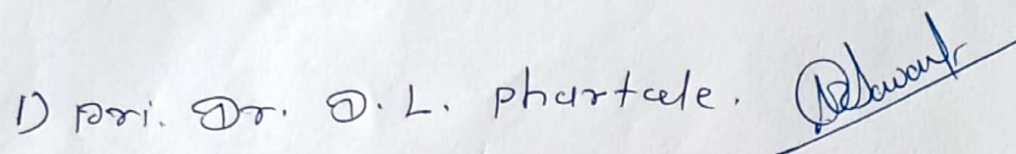 1) pri. Dr. D. L. phartale.